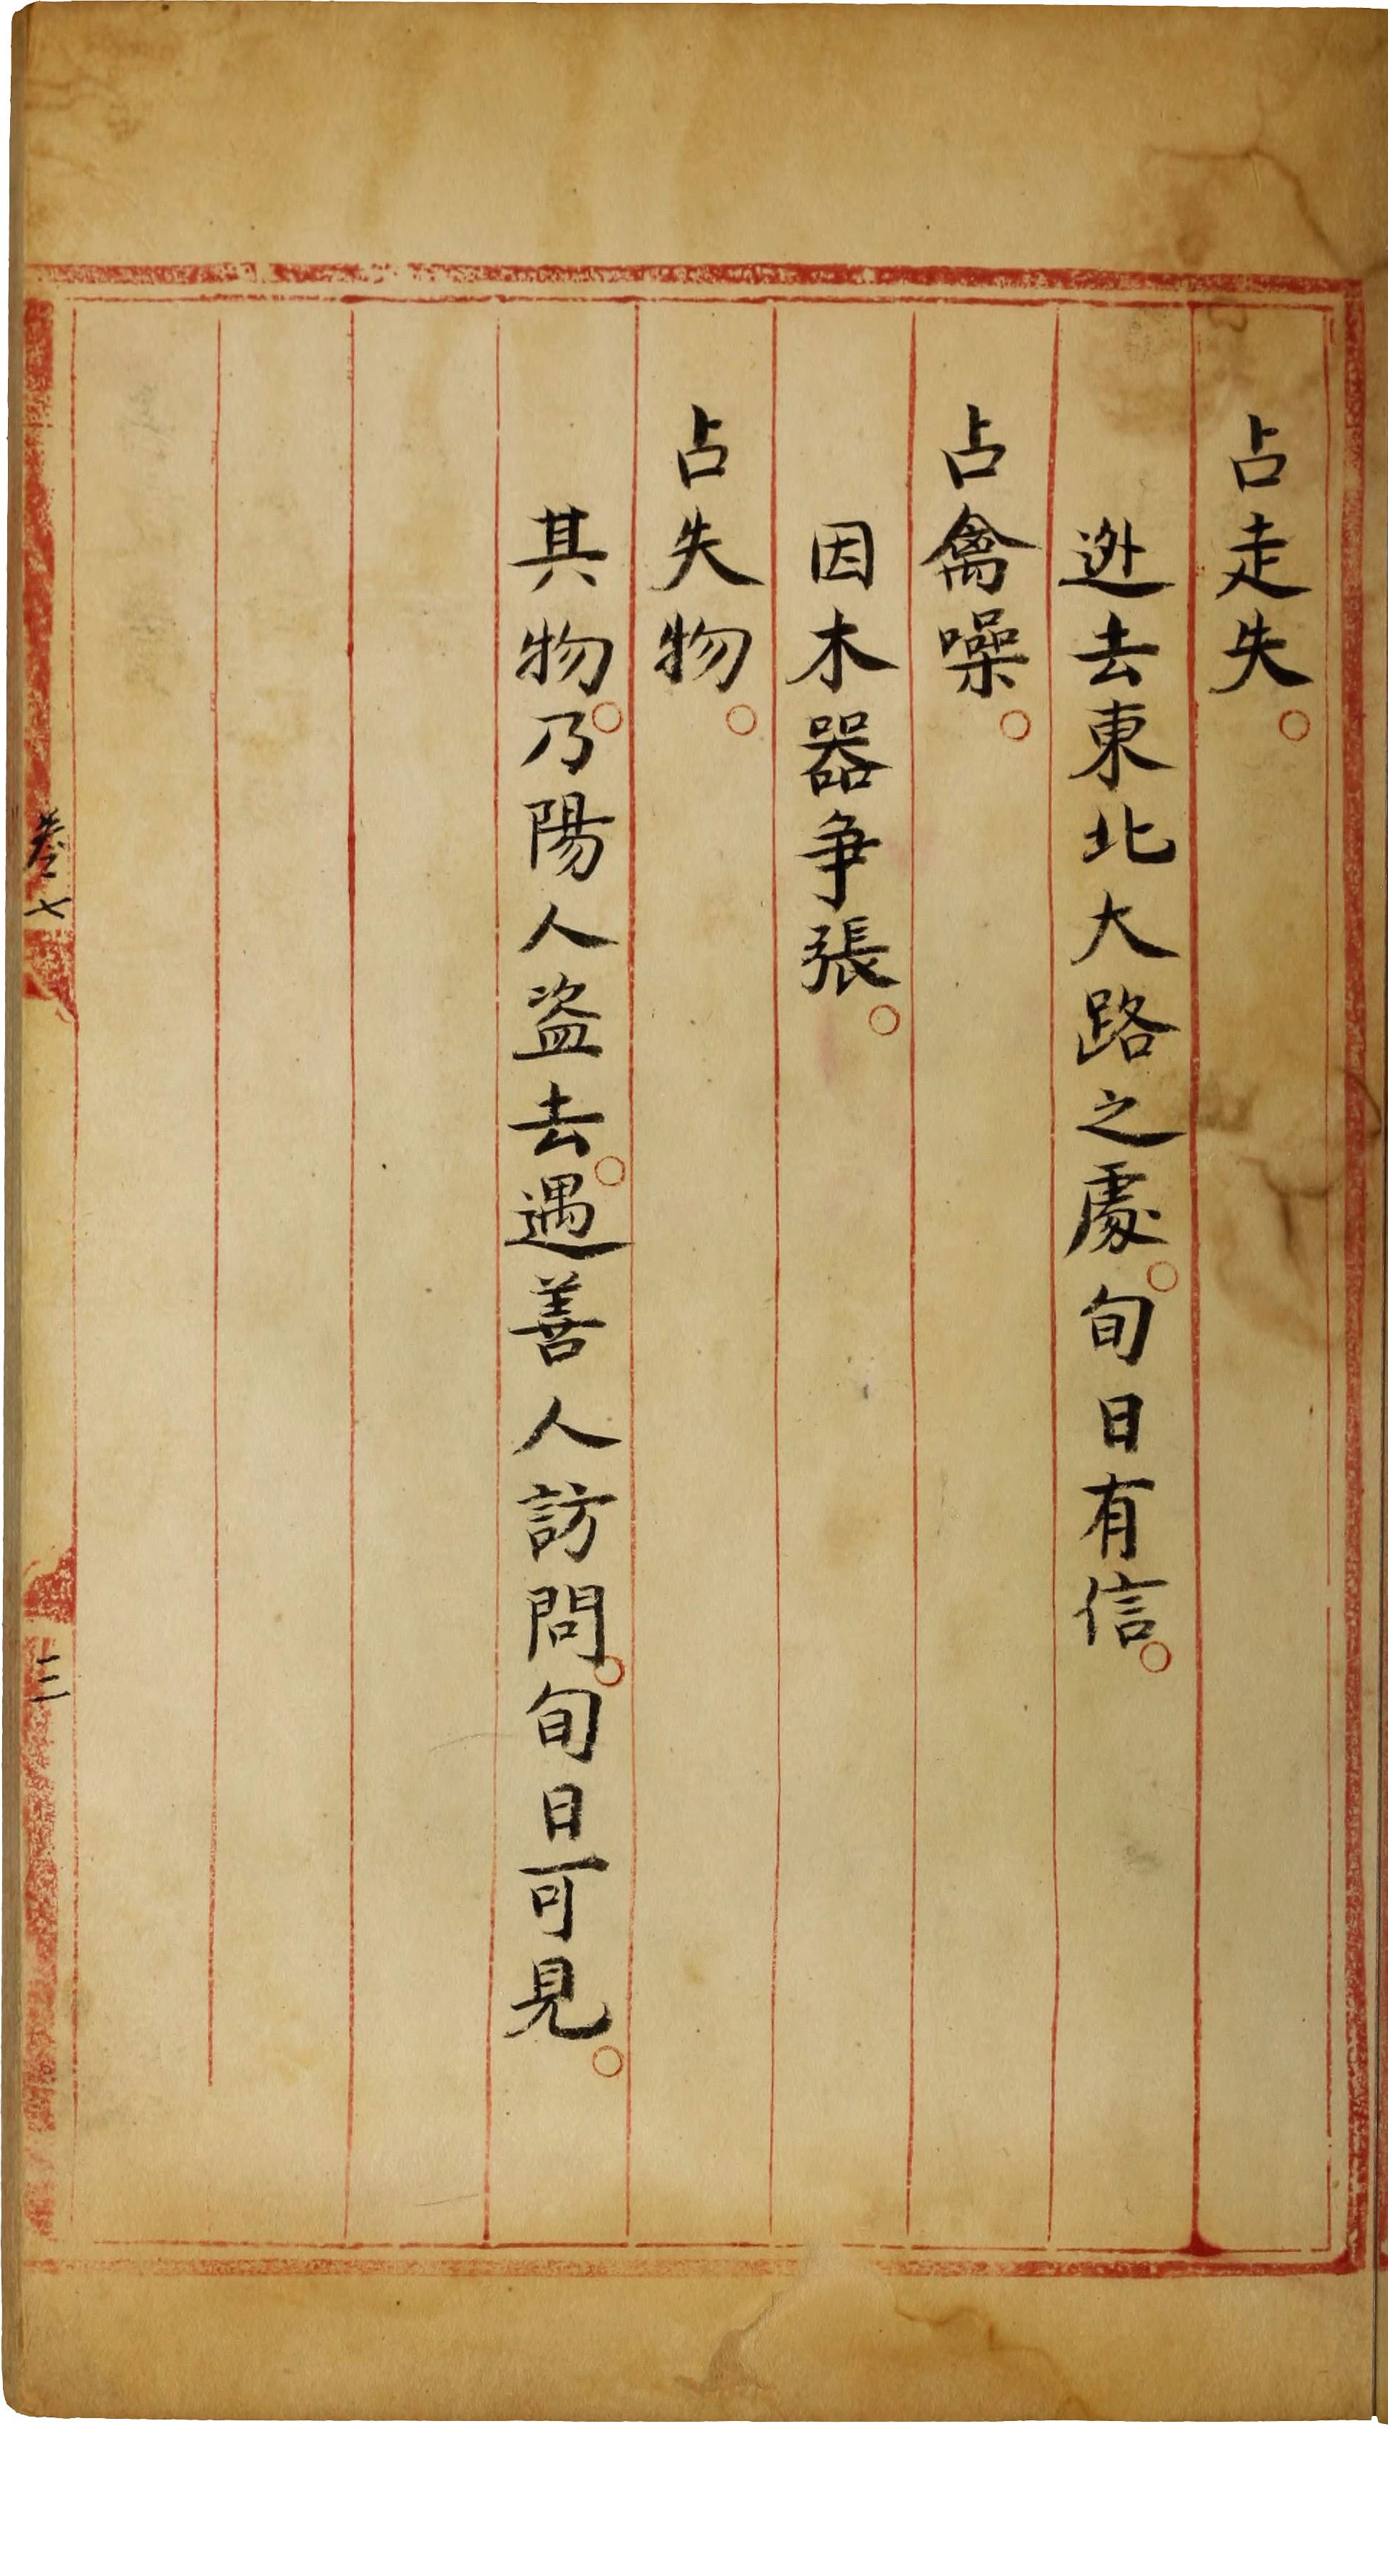 占走失。
迯去東北大路之處。旬日有信。
占禽噪。
因木器争張。
占失物。
其物。乃陽人盗去。遇善人訪問。旬日可見。
卷七
三